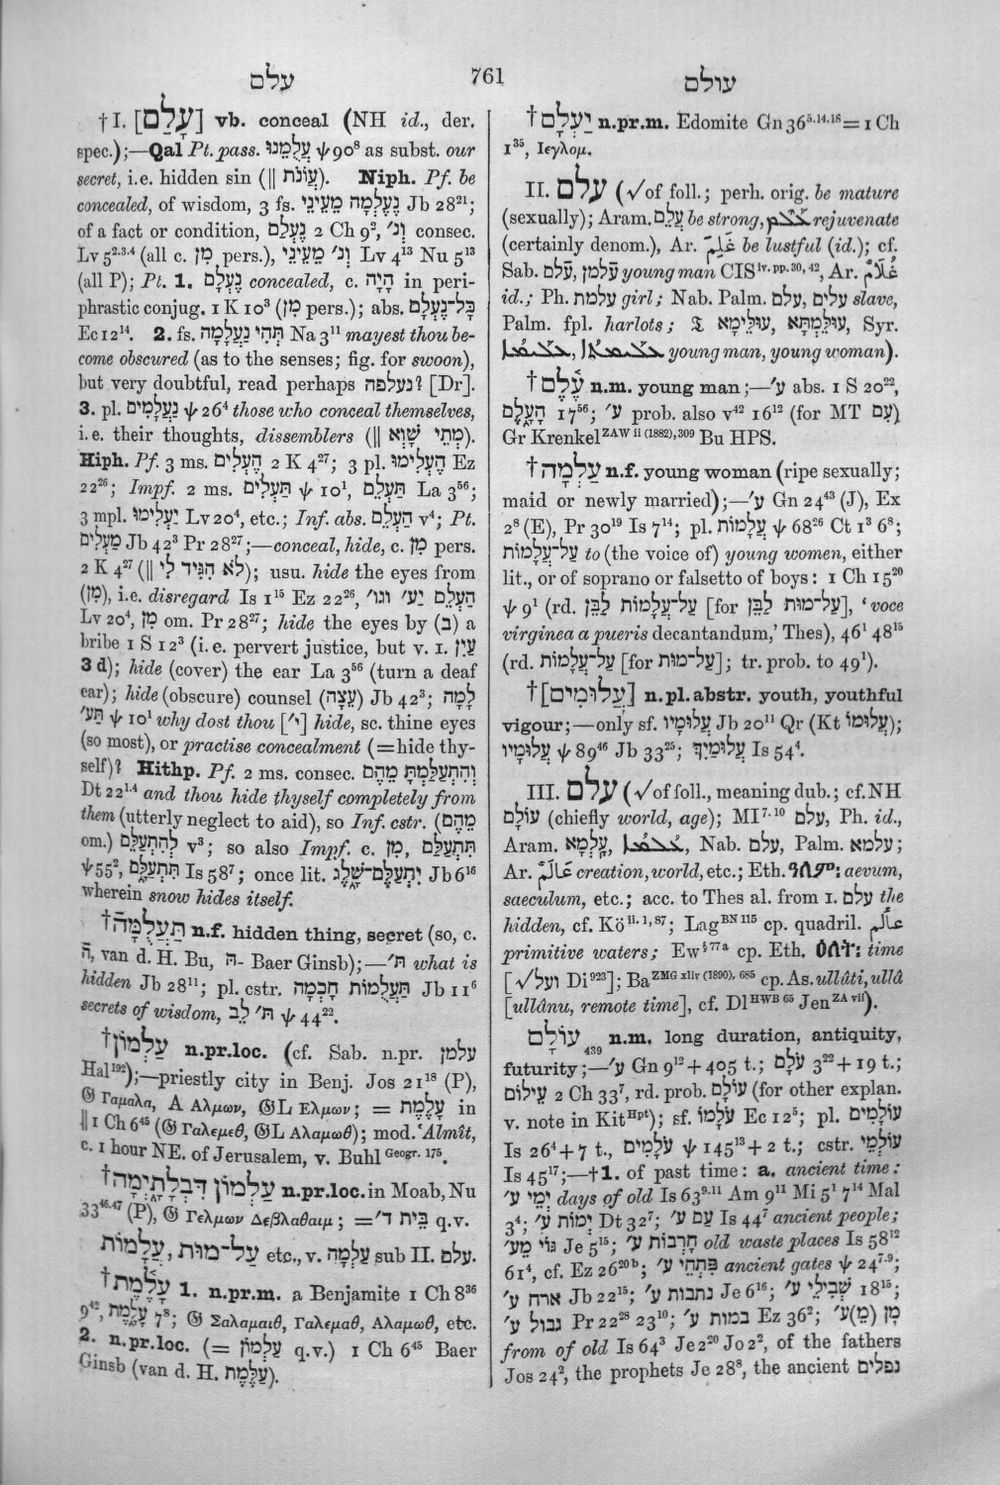 עלם
761
עולם
†I. [עָלַם] vb. conceal (NH id., der.
spec.);—Qal Pt. pass. עֲלֻמֵנוּ ψ 90⁸ as subst. our
secret, i.e. hidden sin (|| עֲוֹנֹת). Niph. Pf. be
concealed, of wisdom, 3 fs. נֶעֶלְמָה מֵעֵינֵי Jb 28²¹;
of a fact or condition, נֶעְלַם 2 Ch 9², וְנ׳ consec.
Lv 5²·³·⁴ (all c. מִן pers.), וְנ׳ מֵעֵינֵי Lv 4¹³ Nu 5¹³
(all P); Pt. 1. נֶעְלָם concealed, c. הָיָה in peri-
phrastic conjug. 1 K 10³ (מִן pers.); abs. כָּל־נֶעְלָם
Ec 12¹⁴. 2. fs. תְּהִי נַעֲלָמָה Na 3¹¹ mayest thou be-
come obscured (as to the senses; fig. for swoon),
but very doubtful, read perhaps נעלפה? [Dr].
3. pl. נַעֲלָמִים ψ 26⁴ those who conceal themselves,
i.e. their thoughts, dissemblers (|| מְתֵי שָׁוְא).
Hiph. Pf. 3 ms. הֶעְלִים 2 K 4²⁷; 3 pl. הֶעְלִימוּ Ez
22²⁶; Impf. 2 ms. תַּעְלִים ψ 10¹, תַּעְלֵם La 3⁵⁶;
3 mpl. יַעְלִימוּ Lv 20⁴, etc.; Inf. abs. הַעְלֵם v⁴; Pt.
מַעְלִים Jb 42³ Pr 28²⁷;—conceal, hide, c. מִן pers.
2 K 4²⁷ (|| לֹא הִגִּיד לִי); usu. hide the eyes from
(מִן), i.e. disregard Is 1¹⁵ Ez 22²⁶, הַעְלֵם יַע׳ וגו׳
Lv 20⁴, מִן om. Pr 28²⁷; hide the eyes by (בּ) a
bribe 1 S 12³ (i.e. pervert justice, but v. I. עַיִן
3 d); hide (cover) the ear La 3⁵⁶ (turn a deaf
ear); hide (obscure) counsel (עֵצָה) Jb 42³; לָמָה
תַּע׳ ψ 10¹ why dost thou [י׳] hide, sc. thine eyes
(so most), or practise concealment (=hide thy-
self)? Hithp. Pf. 2 ms. consec. וְהִתְעַלַּמְתָּ מֵהֶם
Dt 22¹·⁴ and thou hide thyself completely from
them (utterly neglect to aid), so Inf. cstr. (מֵהֶם
om.) לְהִתְעַלֵּם v³; so also Impf. c. מִן, תִּתְעַלֵּם
ψ 55², תִּתְעַלָּם Is 58⁷; once lit. יִתְעַלֶּם־שָׁלֶג Jb 6¹⁶
wherein snow hides itself.
†תַּעֲלֻמָּה n.f. hidden thing, secret (so, c.
הּ, van d. H. Bu, ה- Baer Ginsb);—ת׳ what is
hidden Jb 28¹¹; pl. cstr. תַּעֲלֻמוֹת חָכְמָה Jb 11⁶
secrets of wisdom, ת׳ לֵב ψ 44²².
†עַלְמוֹן n.pr.loc. (cf. Sab. n.pr. עלמן
Hal¹⁹²);—priestly city in Benj. Jos 21¹⁸ (P),
𝔊 Γαμαλα, A Αλμων, 𝔊L Ελμων; = עָלֶמֶת in
|| 1 Ch 6⁴⁵ (𝔊 Γαλεμεθ, 𝔊L Αλαμωθ); mod. ‘Almît,
c. 1 hour NE. of Jerusalem, v. Buhl Geogr. 175.
†עַלְמוֹן דִּבְלָתַיְמָה n.pr.loc. in Moab, Nu
33⁴⁶·⁴⁷ (P), 𝔊 Γελμων Δεβλαθαιμ; =בֵּית ד׳ q.v.
עַל־מוּת, עֲלָמוֹת etc., v. עַלְמָה sub II. עלם.
†עָלֶמֶת 1. n.pr.m. a Benjamite 1 Ch 8³⁶
9⁴², עָלֶמֶת 7⁸; 𝔊 Σαλαμαιθ, Γαλεμαθ, Αλαμωθ, etc.
2. n.pr.loc. (= עַלְמוֹן q.v.) 1 Ch 6⁴⁵ Baer
Ginsb (van d. H. עָלֶּמֶת).
†יַעְלָם n.pr.m. Edomite Gn 36⁵·¹⁴·¹⁸= 1 Ch
1³⁵, Ιεγλομ.
II. עלם (√ of foll.; perh. orig. be mature
(sexually); Aram. עֲלֵם be strong, rejuvenate
(certainly denom.), Ar. غَلِمَ be lustful (id.); cf.
Sab. עלם, עלמן young man CIS iv. pp. 30, 42, Ar. غُلَامٌ
id.; Ph. עלמת girl; Nab. Palm. עלם, עלים slave,
Palm. fpl. harlots; 𝔗 עוּלֵימָא, עוּלֵמְתָּא, Syr.
ܥܠܝܡܐ, ܥܠܝܡܬܐ young man, young woman).
†עֶלֶם n.m. young man;—ע׳ abs. 1 S 20²²,
הָעָלֶם 17⁵⁶; ע׳ prob. also v⁴² 16¹² (for MT עִם)
Gr Krenkel ZAW ii (1882), 309 Bu HPS.
†עַלְמָה n.f. young woman (ripe sexually;
maid or newly married);—ע׳ Gn 24⁴³ (J), Ex
2⁸ (E), Pr 30¹⁹ Is 7¹⁴; pl. עֲלָמוֹת ψ 68²⁶ Ct 1³ 6⁸;
עַל־עֲלָמוֹת to (the voice of) young women, either
lit., or of soprano or falsetto of boys: 1 Ch 15²⁰
ψ 9¹ (rd. עַל־עֲלָמוֹת לַבֵּן [for עַל־מוּת לַבֵּן], ‘voce
virginea a pueris decantandum,’ Thes), 46¹ 48¹⁵
(rd. עַל־עֲלָמוֹת [for עַל־מוּת]; tr. prob. to 49¹).
†[עֲלוּמִים] n.pl.abstr. youth, youthful
vigour;—only sf. עֲלוּמָיו Jb 20¹¹ Qr (Kt עֲלוּמוֹ);
עֲלוּמָיו ψ 89⁴⁶ Jb 33²⁵; עֲלוּמַיִךְ Is 54⁴.
III. עלם (√ of foll., meaning dub.; cf. NH
עוֹלָם (chiefly world, age); MI⁷·¹⁰ עלם, Ph. id.,
Aram. עָלְמָא, ܥܠܡܐ, Nab. עלם, Palm. עלמא;
Ar. عَالَمٌ creation, world, etc.; Eth. ዓለም፡ aevum,
saeculum, etc.; acc. to Thes al. from I. עלם the
hidden, cf. Kö ii. 1, 87; Lag BN 115 cp. quadril.
primitive waters; Ew § 77a cp. Eth. time
[√ועל Di 923]; Ba ZMG xliv (1890), 685 cp. As. ullâti, ullâ
[ullânu, remote time], cf. Dl HWB 65 Jen ZA vii).
עוֹלָם 439 n.m. long duration, antiquity,
futurity;—ע׳ Gn 9¹² + 405 t.; עֹלָם 3²² + 19 t.;
עֵילוֹם 2 Ch 33⁷, rd. prob. עוֹלָם (for other explan.
v. note in Kit Hpt); sf. עֹלָמוֹ Ec 12⁵; pl. עוֹלָמִים
Is 26⁴ + 7 t., עֹלָמִים ψ 145¹³ + 2 t.; cstr. עוֹלְמֵי
Is 45¹⁷;—†1. of past time: a. ancient time:
יְמֵי ע׳ days of old Is 63⁹·¹¹ Am 9¹¹ Mi 5¹ 7¹⁴ Mal
3⁴; יְמוֹת ע׳ Dt 32⁷; עַם ע׳ Is 44⁷ ancient people;
גּוֹי מֵע׳ Je 5¹⁵; חָרְבוֹת ע׳ old waste places Is 58¹²
61⁴, cf. Ez 26²⁰ᵇ; פִּתְחֵי ע׳ ancient gates ψ 24⁷·⁹;
ארח ע׳ Jb 22¹⁵; נתבות ע׳ Je 6¹⁶; שְׁבִילֵי ע׳ 18¹⁵;
גבול ע׳ Pr 22²⁸ 23¹⁰; במות ע׳ Ez 36²; מִן (מֵ)ע׳
from of old Is 64³ Je 2²⁰ Jo 2², of the fathers
Jos 24², the prophets Je 28⁸, the ancient נפלים